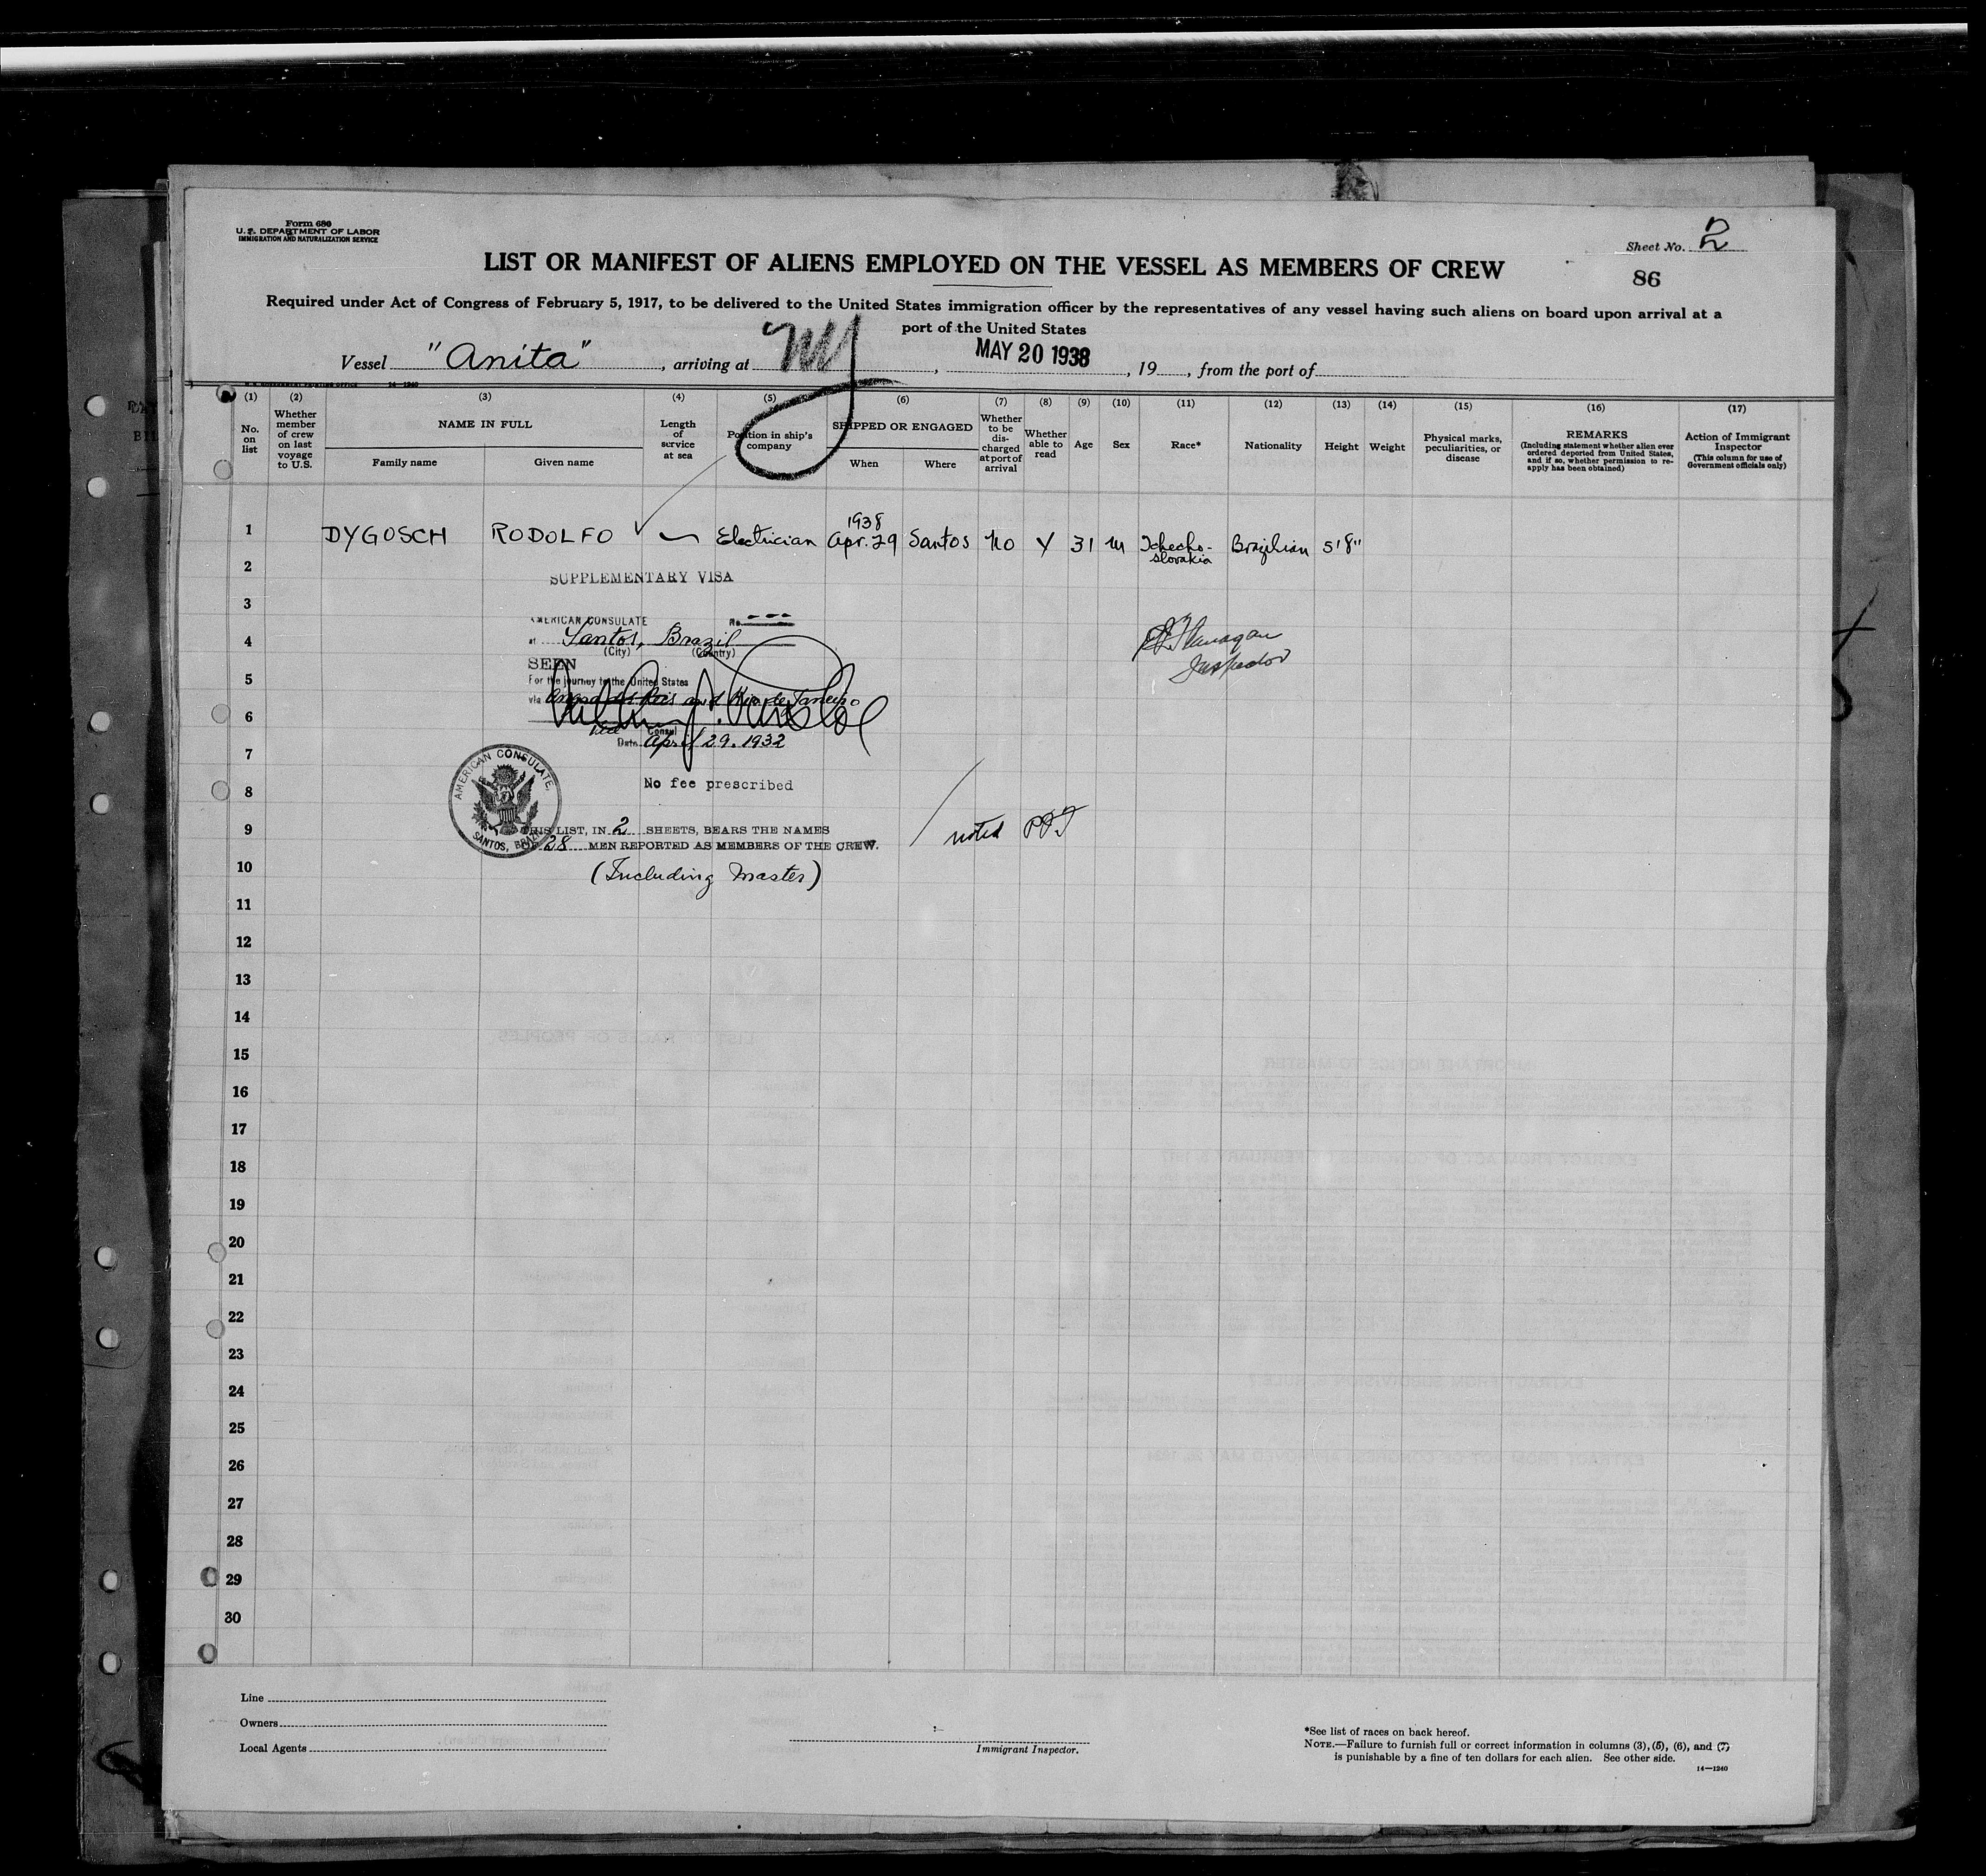 Form 680
U.S. DEPARTMENT OF LABOR
IMMIGRATION AND NATURALIZATION SERVICE
Sheet No. 2
86
LIST OR MANIFEST OF ALIENS EMPLOYED ON THE VESSEL AS MEMBERS OF CREW
Required under Act of Congress of February 5, 1917, to be delivered to the United States immigration officer by the representatives of any vessel having such aliens on board upon arrival at a
port of the United States
Vessel "Anita", arriving at NY, MAY 20 1938, 19, from the port of
(1) (2) (3) (4) (5) (6) (7) (8) (9) (10) (11) (12) (13) (14) (15) (16) (17)
No. on list
Whether member of crew on last voyage to U.S.
NAME IN FULL
Family name
Given name
Length of service at sea
Position in ship's company
SHIPPED OR ENGAGED
When
Where
Whether to be discharged at port of arrival
Whether able to read
Age
Sex
Race*
Nationality
Height
Weight
Physical marks, peculiarities, or disease
REMARKS
(Including statement whether alien ever ordered deported from United States, and if so, whether permission to reapply has been obtained)
Action of Immigrant Inspector
(This column for use of Government officials only)
1 DYGOSCH RODOLFO Electrician 1938 Apr. 29 Santos No Y 31 M Tchecho-slovakia Brazilian 5'8"
2
SUPPLEMENTARY VISA
3
AMERICAN CONSULATE No. ---
4
at Santos, Brazil
(City) (Country)
Flanagan
Inspector
SEEN
5
For the journey to the United States
via Angra dos Reis and Rio de Janeiro
6
Vice Consul
Date April 29. 1932
7
AMERICAN CONSULATE,
SANTOS, BRAZIL
8
No fee prescribed
9
THIS LIST, IN 2 SHEETS, BEARS THE NAMES
OF 28 MEN REPORTED AS MEMBERS OF THE CREW.
noted
10
(Including Master)
11
12
13
14
15
16
17
18
19
20
21
22
23
24
25
26
27
28
29
30
Line
Owners
Local Agents
Immigrant Inspector.
*See list of races on back hereof.
NOTE.—Failure to furnish full or correct information in columns (3), (5), (6), and (7)
is punishable by a fine of ten dollars for each alien. See other side.
14—1240